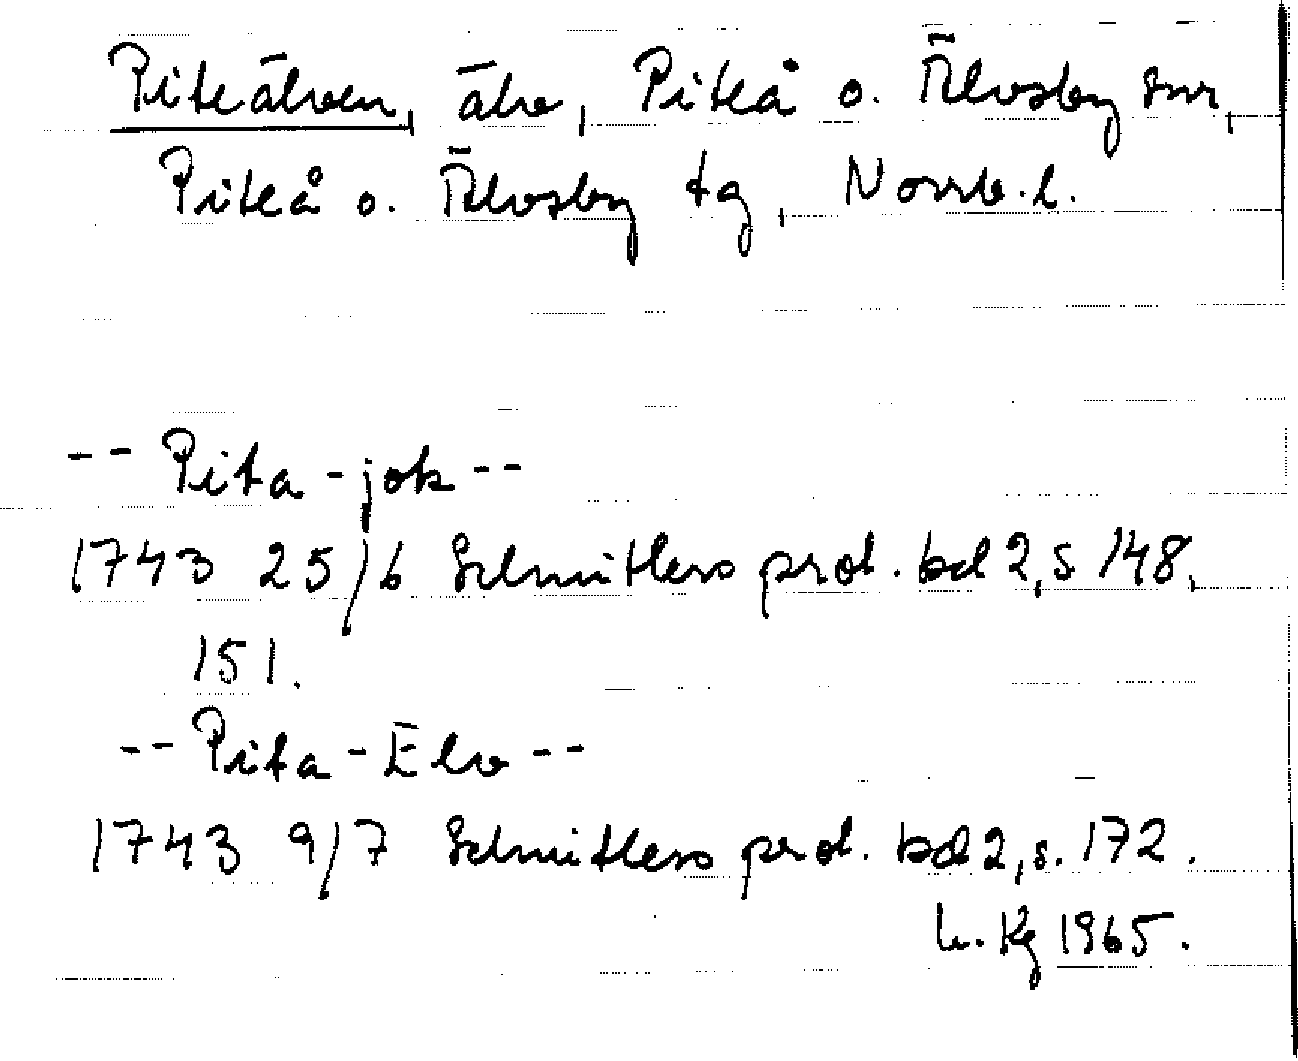 Piteälven, älv, Piteå o. Älvsby snr,
Piteå o. Älvsby tg, Norrb. l.
-- Pita-jok --
1743 25/6 Schnitlers prot. bd 2, s 148,
151.
-- Pita-Elv --
1743 9/7 Schnitlers prot. bd 2, s. 172.
Kg 1965.